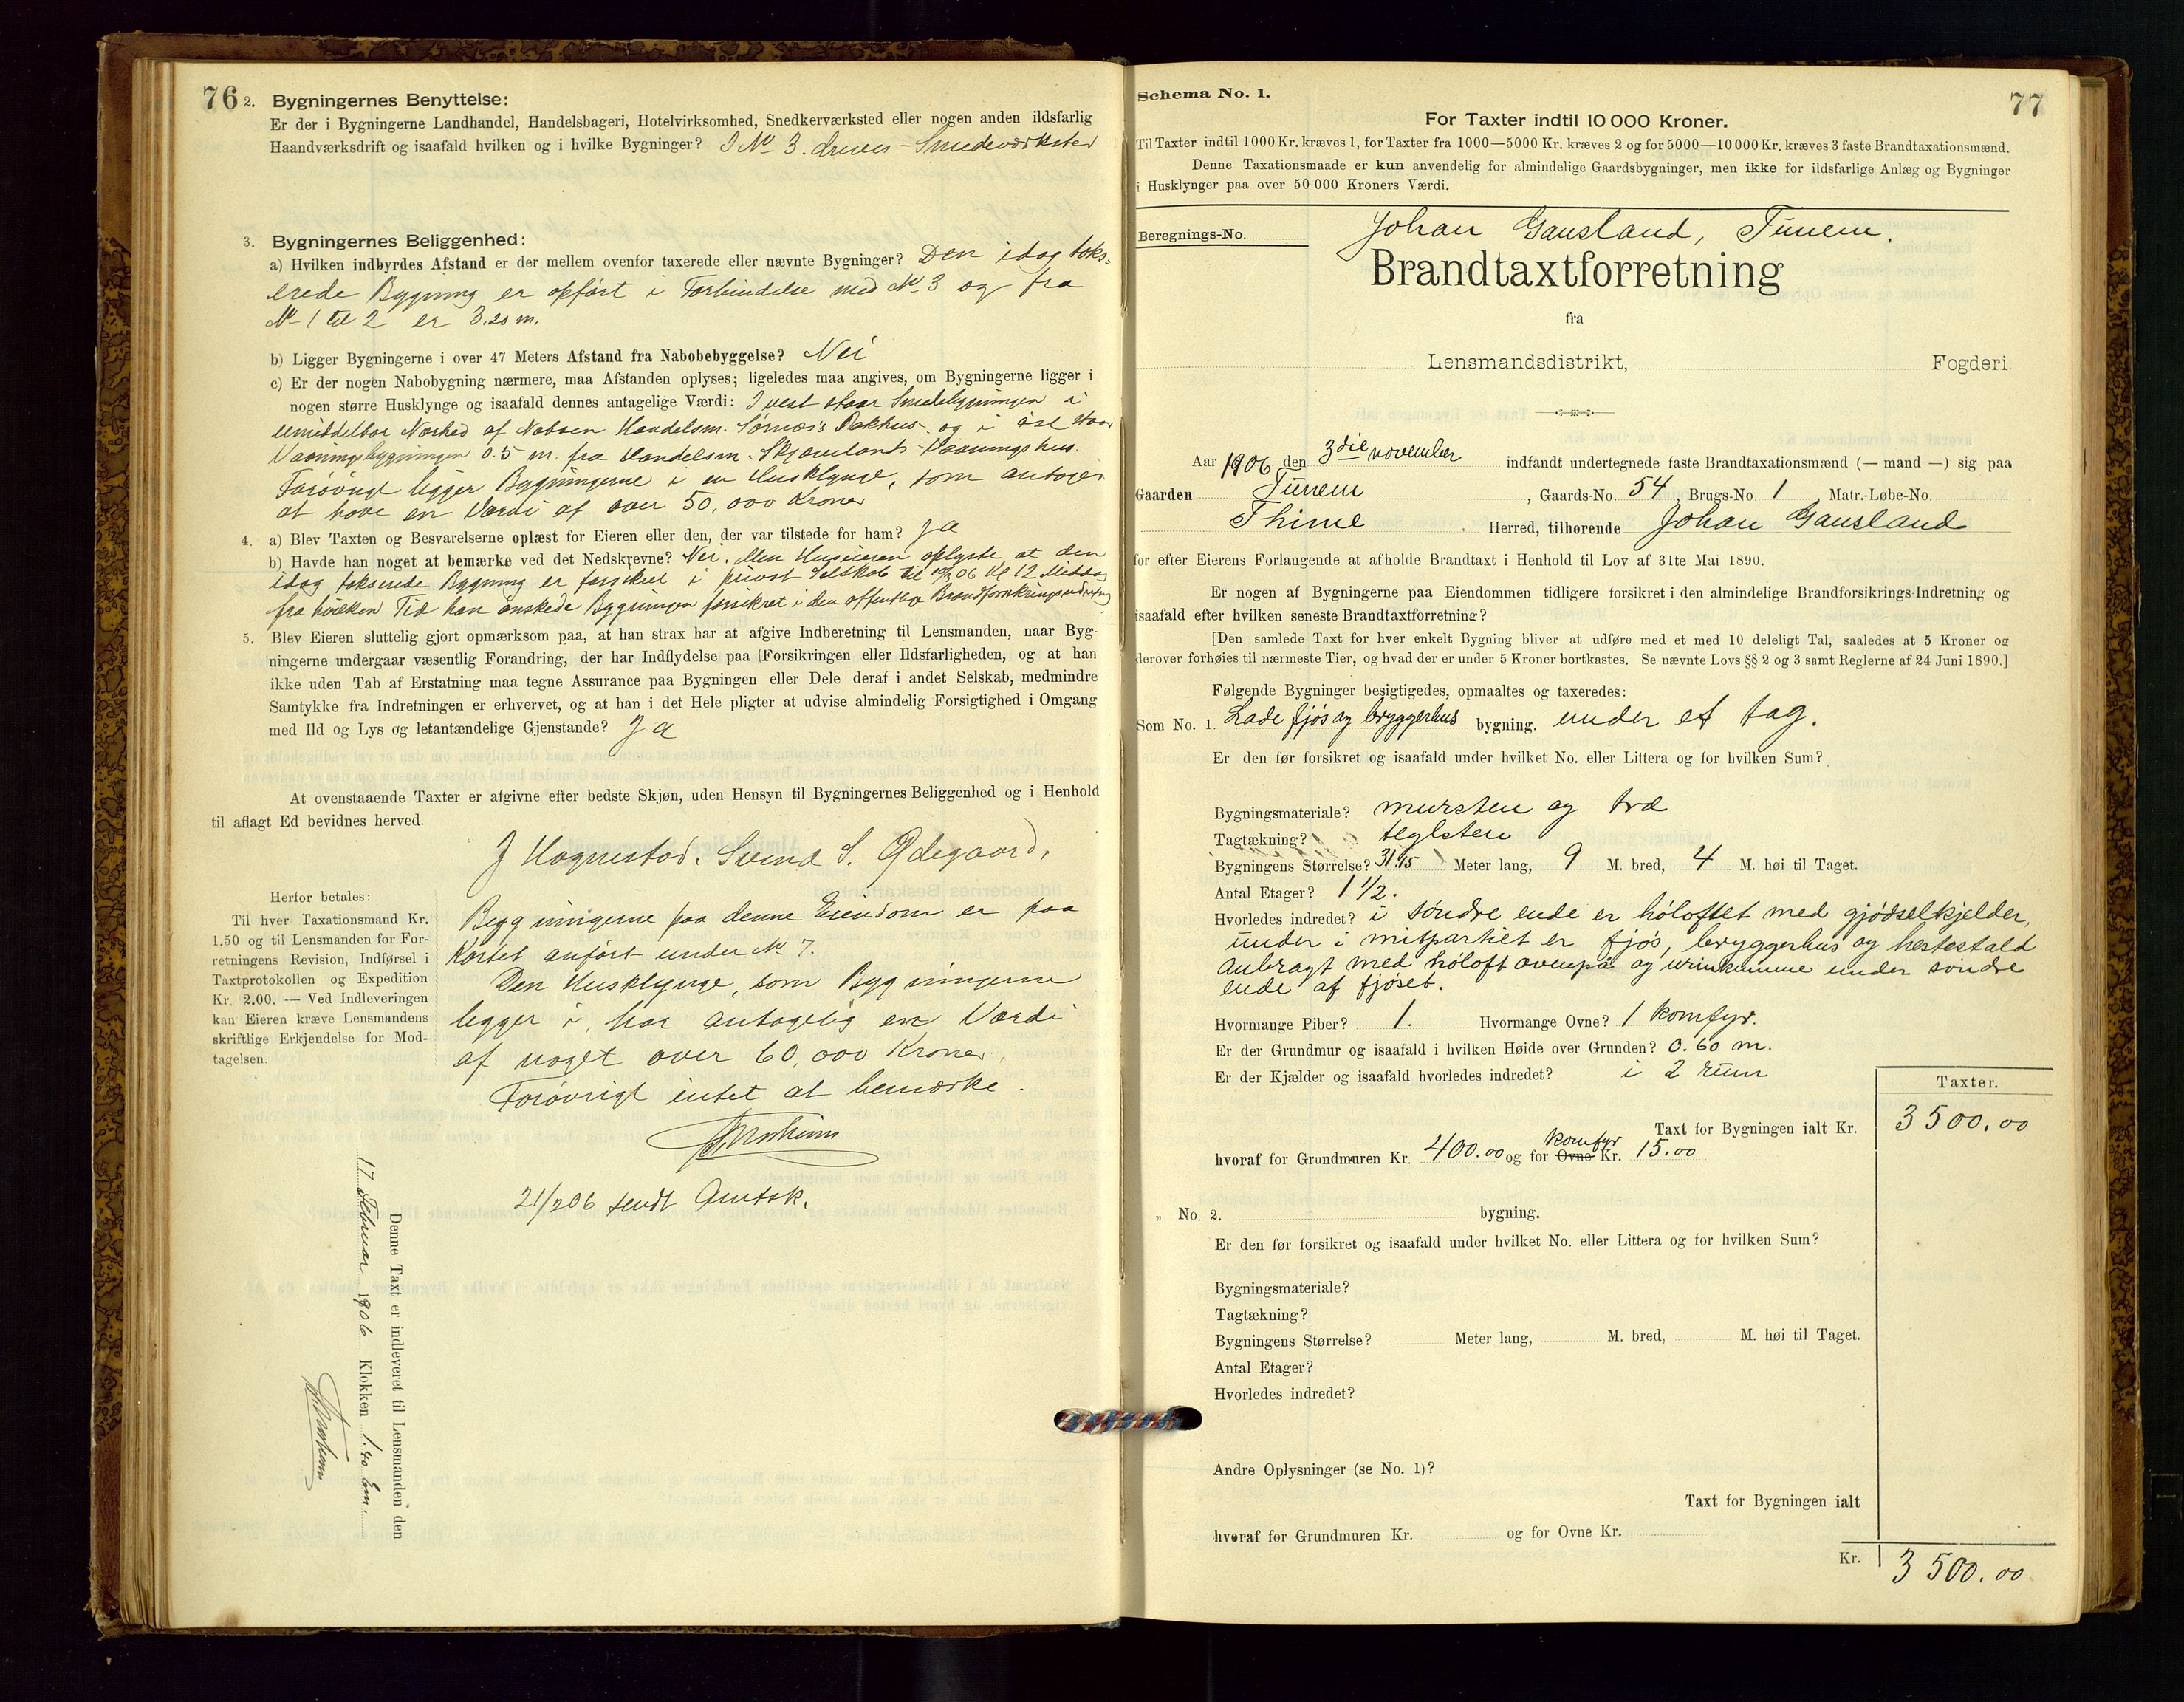 76
2. Bygningernes Benyttelse:
Er der i Bygningerne Landhandel, Handelsbageri, Hotelvirksomhed, Snedkerværksted eller nogen anden ildsfarlig
Haandværksdrift og isaafald hvilken og i hvilke Bygninger? I No 3. drives Smedeværksted
3. Bygningernes Beliggenhed:
a) Hvilken indbyrdes Afstand er der mellem ovenfor taxerede eller nævnte Bygninger? Den idag taks-
erede Bygning er opført i Forbindelse med No 3 og fra
No 1 til 2 er 3.20 m.
b) Ligger Bygningerne i over 47 Meters Afstand fra Nabobebyggelse? Nei
c) Er der nogen Nabobygning nærmere, maa Afstanden oplyses; ligeledes maa angives, om Bygningerne ligger i
nogen større Husklynge og isaafald dennes antagelige Værdi: I vest staar Smedebygningen i
umiddelbar Nærhed af Naboen Handelsm. Pakhus og i øst staar
Vaaningsbygningen 0.5 m. fra Handelsm. Skjævelands Vaaningshus.
Forøvrigt ligger Bygningerne i en Husklynge, som antages
at have en Værdi af over 50,000 Kroner
4. a) Blev Taxten og Besvarelserne oplæst for Eieren eller den, der var tilstede for ham? Ja
b) Havde han noget at bemærke ved det Nedskrevne? Nei. Men Huseieren oplyste at den
idag takserede Bygning er forsikret i privat Selskab til 06 Kl 12 Middag
fra hvilken Tid han ønskede Bygningen forsikret i den offentlige Brandforsikringsindretning
5. Blev Eieren sluttelig gjort opmærksom paa, at han strax har at afgive Indberetning til Lensmanden, naar Byg-
ningerne undergaar væsentlig Forandring, der har Indflydelse paa Forsikringen eller Ildsfarligheden, og at han
ikke uden Tab af Erstatning maa tegne Assurance paa Bygningen eller Dele deraf i andet Selskab, medmindre
Samtykke fra Indretningen er erhvervet, og at han i det Hele pligter at udvise almindelig Forsigtighed i Omgang
med Ild og Lys og letantændelige Gjenstande? Ja
At ovenstaaende Taxter er afgivne efter bedste Skjøn, uden Hensyn til Bygningernes Beliggenhed og i Henhold
til aflagt Ed bevidnes herved.
J Hognestad. Svend S. Ødegaard.
Herfor betales:
Til hver Taxationsmand Kr.
1.50 og til Lensmanden for For-
retningens Revision, Indførsel i
Taxtprotokollen og Expedition
Kr. 2.00. — Ved Indleveringen
kan Eieren kræve Lensmandens
skriftlige Erkjendelse for Mod-
tagelsen.
Bygningerne paa denne Eiendom er paa
Kartet anført under No 7.
Den Husklynge, som Bygningerne
ligger i, har antagelig en Værdi
af noget over 60,000 Kroner.
Forøvrigt intet at bemærke.
21/2 06 sendt Amtsk.
Denne Taxt er indleveret til Lensmanden den
17 Februar 1906 Klokken 1.40 Em.
77
Schema No. 1.
For Taxter indtil 10 000 Kroner.
Til Taxter indtil 1000 Kr. kræves 1, for Taxter fra 1000—5000 Kr. kræves 2 og for 5000—10 000 Kr. kræves 3 faste Brandtaxationsmænd.
Denne Taxationsmaade er kun anvendelig for almindelige Gaardsbygninger, men ikke for ildsfarlige Anlæg og Bygninger
i Husklynger paa over 50 000 Kroners Værdi.
Beregnings-No.
Johan Gausland, Tunem.
Brandtaxtforretning
fra
Lensmandsdistrikt, Fogderi
Aar 1906 den 3die november indfandt undertegnede faste Brandtaxationsmænd (— mand —) sig paa
Gaarden Tunem, Gaards-No. 54, Brugs-No. 1, Matr.-Løbe-No.
Thime Herred, tilhørende Johan Gausland
for efter Eierens Forlangende at afholde Brandtaxt i Henhold til Lov af 31te Mai 1890.
Er nogen af Bygningerne paa Eiendommen tidligere forsikret i den almindelige Brandforsikrings-Indretning og
isaafald efter hvilken seneste Brandtaxtforretning?
[Den samlede Taxt for hver enkelt Bygning bliver at udføre med et med 10 deleligt Tal, saaledes at 5 Kroner og
derover forhøies til nærmeste Tier, og hvad der er under 5 Kroner bortkastes. Se nævnte Lovs §§ 2 og 3 samt Reglerne af 24 Juni 1890.]
Følgende Bygninger besigtigedes, opmaaltes og taxeredes:
Som No. 1. Lade fjøs og bryggerhus bygning. under et tag.
Er den før forsikret og isaafald under hvilket No. eller Littera og for hvilken Sum?
Bygningsmateriale? mursten og træ
Tagtækning? teglsten
Bygningens Størrelse? 31.15 Meter lang, 9 M. bred, 4 M. høi til Taget.
Antal Etager? 1 1/2.
Hvorledes indredet? i søndre ende er høloftet med gjødselkjelder,
under i mitpartiet er fjøs, bryggerhus og hestestald
anbragt med høloft ovenpå og urinkumme under søndre
ende af fjøset.
Hvormange Piber? 1. Hvormange Ovne? 1 komfyr.
Er der Grundmur og isaafald i hvilken Høide over Grunden? 0.60 m.
Er der Kjælder og isaafald hvorledes indredet? i 2 rum
Taxter.
Taxt for Bygningen ialt Kr. 3500.00
hvoraf for Grundmuren Kr. 400.00 og for Ovne komfyr Kr. 15.00
„ No. 2. bygning.
Er den før forsikret og isaafald under hvilket No. eller Littera og for hvilken Sum?
Bygningsmateriale?
Tagtækning?
Bygningens Størrelse? Meter lang, M. bred, M. høi til Taget.
Antal Etager?
Hvorledes indredet?
Andre Oplysninger (se No. 1)?
Taxt for Bygningen ialt
hvoraf for Grundmuren Kr. og for Ovne Kr.
Kr. 3500.00